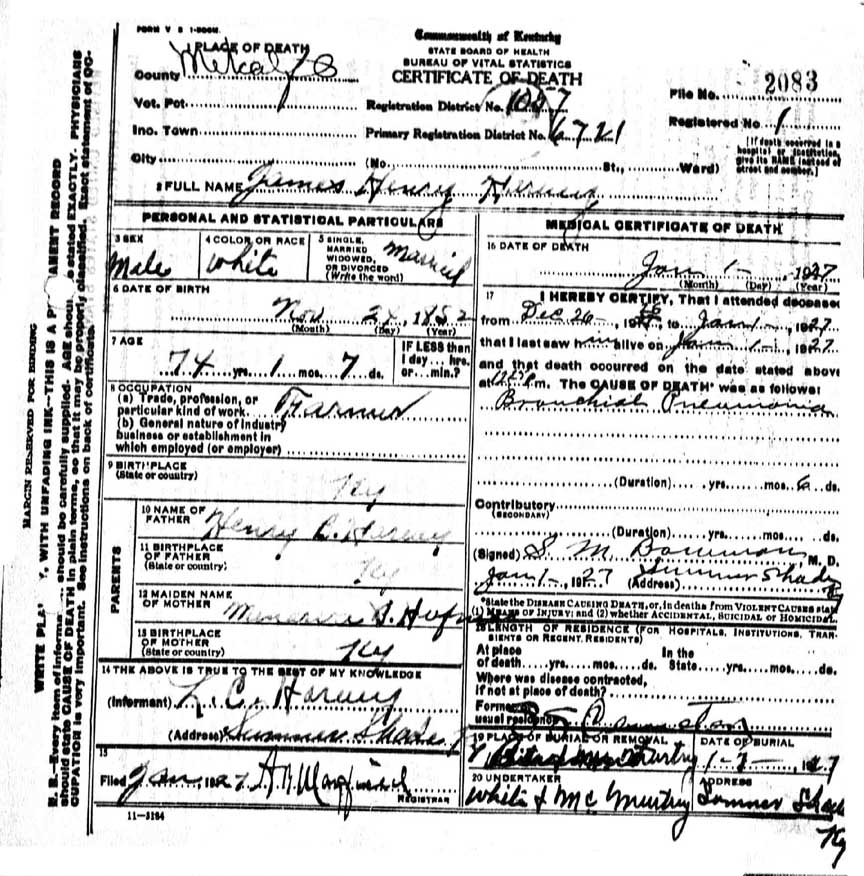 FORM V S 1-500M.
Commonwealth of Kentucky
STATE BOARD OF HEALTH
BUREAU OF VITAL STATISTICS
CERTIFICATE OF DEATH
1 PLACE OF DEATH
County Metcalfe
Vot. Pct.
Inc. Town
City
Registration District No. 1057
Primary Registration District No. 6721
(No. St., Ward)
File No. 2083
Registered No. 1
[If death occurred in a hospital or institution, give its NAME instead of street and number.]
2 FULL NAME James Henry Harvey
PERSONAL AND STATISTICAL PARTICULARS
3 SEX
Male
4 COLOR OR RACE
White
5 SINGLE, MARRIED WIDOWED, OR DIVORCED (Write the word)
Married
6 DATE OF BIRTH
Nov 24, 1852
(Month) (Day) (Year)
7 AGE
74 yrs. 1 mos. 7 ds.
IF LESS than 1 day... hrs. or... min.?
8 OCCUPATION
(a) Trade, profession, or particular kind of work Farmer
(b) General nature of industry business or establishment in which employed (or employer)
9 BIRTHPLACE
(State or country)
Ky
PARENTS
10 NAME OF FATHER
Henry C. Harvey
11 BIRTHPLACE OF FATHER
(State or country)
Ky
12 MAIDEN NAME OF MOTHER
13 BIRTHPLACE OF MOTHER
(State or country)
Ky
14 THE ABOVE IS TRUE TO THE BEST OF MY KNOWLEDGE
(Informant) L. C. Harvey
(Address) Summer Shade Ky
15
Filed Jan, 1927
REGISTRAR
11-3184
MEDICAL CERTIFICATE OF DEATH
16 DATE OF DEATH
Jan 1 - 1927
(Month) (Day) (Year)
17 I HEREBY CERTIFY, That I attended deceased
from Dec 26 - to Jan 1 -, 1927
that I last saw him alive on Jan 1 -, 1927
and that death occurred on the date stated above
at m. The CAUSE OF DEATH* was as follows:
Bronchial Pneumonia
(Duration) yrs. mos. 6 ds.
Contributory
(SECONDARY)
(Duration) yrs. mos. ds.
(Signed) S. M. Bowman M. D.
Jan 1 -, 1927 (Address) Summer Shade
*State the DISEASE CAUSING DEATH, or, in deaths from VIOLENT CAUSES state
(1) MEANS OF INJURY; and (2) whether ACCIDENTAL, SUICIDAL or HOMICIDAL.
18 LENGTH OF RESIDENCE (FOR HOSPITALS, INSTITUTIONS, TRANSIENTS OR RECENT RESIDENTS)
At place of death yrs. mos. ds. In the State yrs. mos. ds.
Where was disease contracted, if not at place of death?
Former or usual residence
19 PLACE OF BURIAL OR REMOVAL
DATE OF BURIAL
1927
20 UNDERTAKER
White & McMurtry
ADDRESS
Summer Shade
Ky
MARGIN RESERVED FOR BINDING
WRITE PLAINLY, WITH UNFADING INK--THIS IS A PERMANENT RECORD
N. B.--Every item of information should be carefully supplied. AGE should be stated EXACTLY. PHYSICIANS
should state CAUSE OF DEATH in plain terms, so that it may be properly classified. Exact statement of OC-
CUPATION is very important. See instructions on back of certificate.